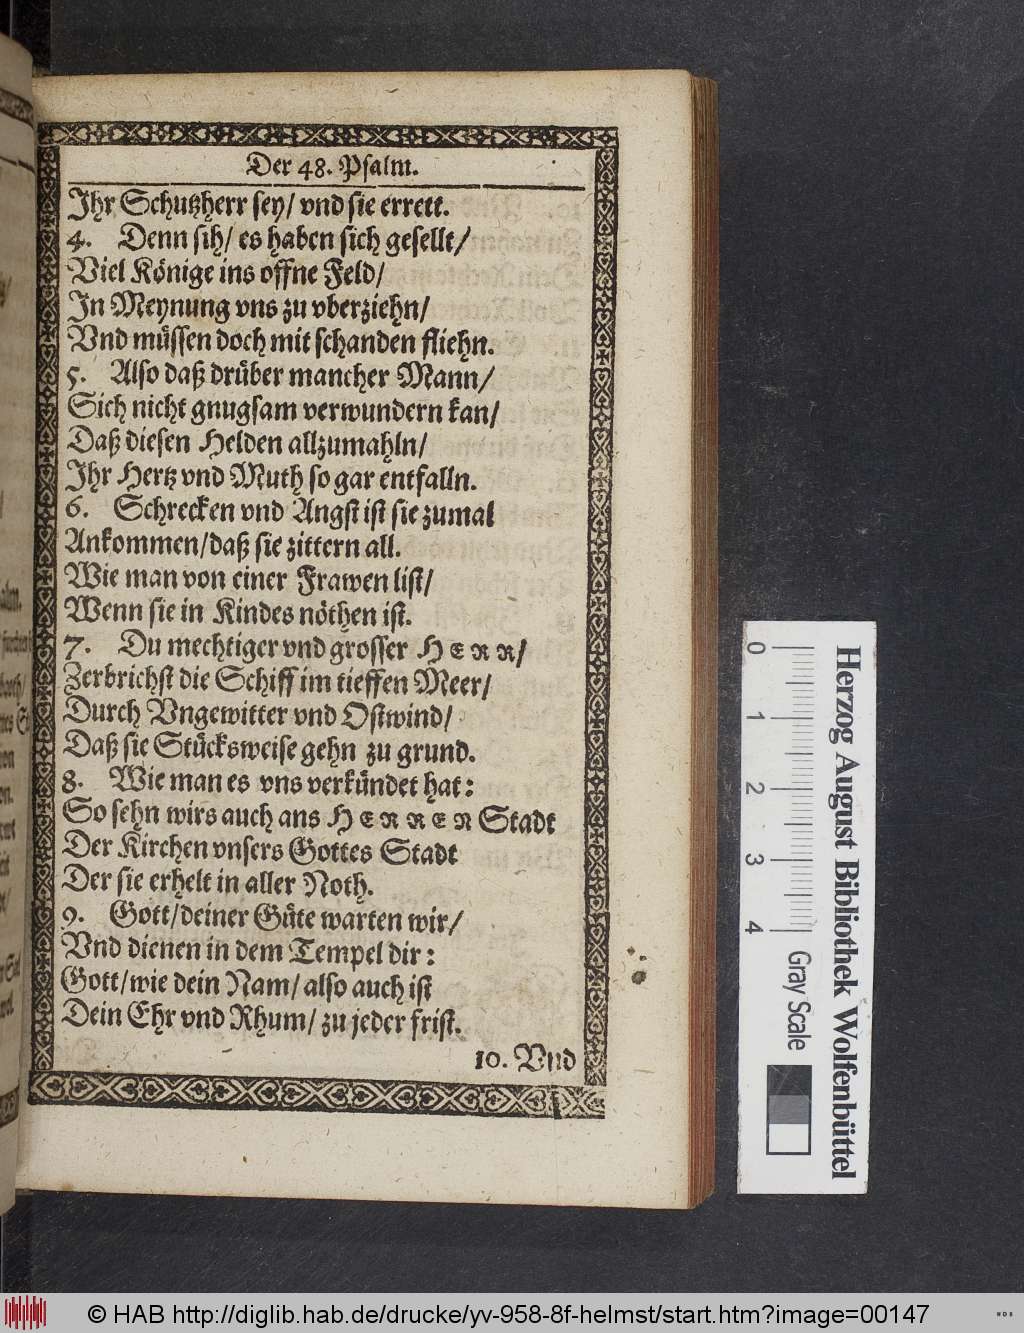 Der 48. Psalm.
Ihr Schutzherr sey/ vnd sie errett.
4. Denn sih/ es haben sich gesellt/
Viel Könige ins offne Feld/
In Meynung vns zu vberziehn/
Vnd müssen doch mit schanden fliehn.
5. Also daß drüber mancher Mann/
Sich nicht gnugsam verwundern kan/
Daß diesen Helden allzumahln/
Ihr Hertz vnd Muth so gar entfalln.
6. Schrecken vnd Angst ist sie zumal
Ankommen/daß sie zittern all.
Wie man von einer Frawen list/
Wenn sie in Kindes nöthen ist.
7. Du mechtiger vnd grosser HERR/
Zerbrichst die Schiff im tieffen Meer/
Durch Vngewitter vnd Ostwind/
Daß sie Stücksweise gehn zu grund.
8. Wie man es vns verkündet hat:
So sehn wirs auch ans HERREN Stadt
Der Kirchen vnsers Gottes Stadt
Der sie erhelt in aller Noth.
9. Gott/deiner Güte warten wir/
Vnd dienen in dem Tempel dir:
Gott/wie dein Nam/ also auch ist
Dein Ehr vnd Rhum/ zu jeder frist.
10. Vnd
0 1 2 3 4
Gray Scale
Herzog August Bibliothek Wolfenbüttel
© HAB http://diglib.hab.de/drucke/yv-958-8f-helmst/start.htm?image=00147